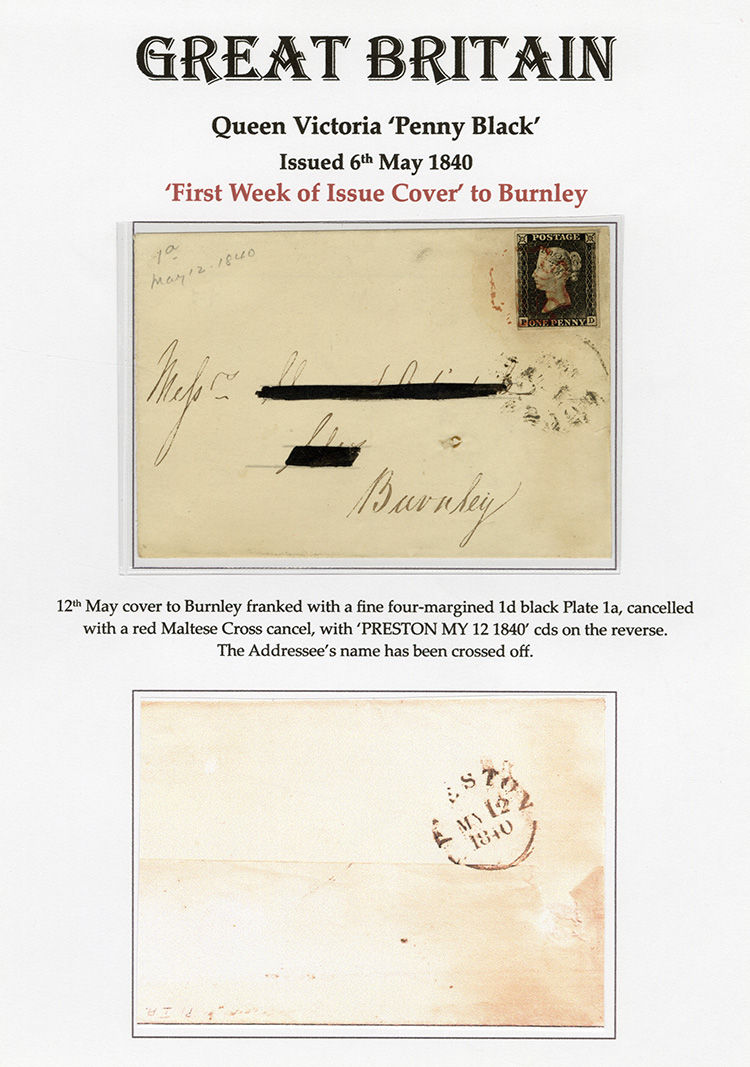 GREAT BRITAIN
Queen Victoria ‘Penny Black’
Issued 6th May 1840
‘First Week of Issue Cover’ to Burnley
1a
May 12 - 1840
POSTAGE
P ONE PENNY D
Messrs
Burnley
12th May cover to Burnley franked with a fine four-margined 1d black Plate 1a, cancelled
with a red Maltese Cross cancel, with ‘PRESTON MY 12 1840’ cds on the reverse.
The Addressee’s name has been crossed off.
PRESTON
MY 12
1840